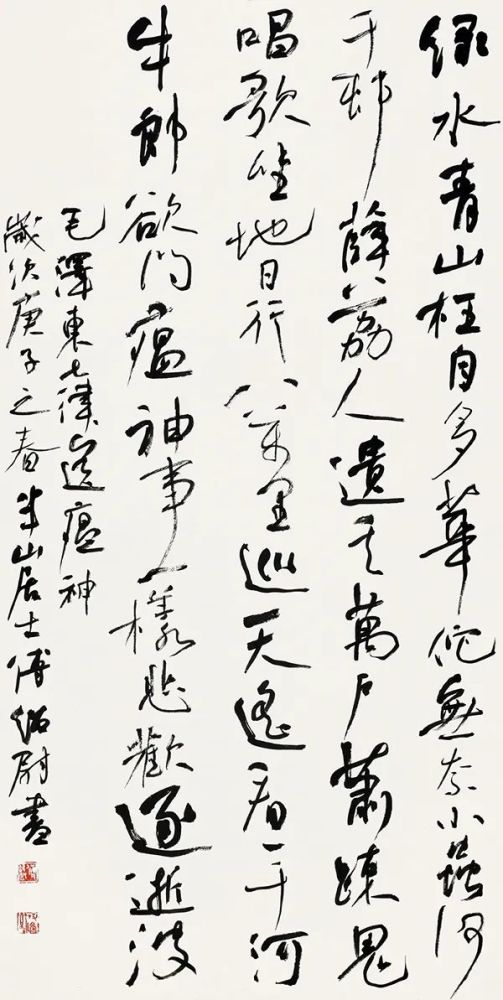 绿水青山枉自多華佗無奈小蟲何
千邨薜荔人遺矢萬户蕭疎鬼
唱歌坐地日行八万里巡天遥看一千河
牛郎欲问瘟神事一樣悲歡逐逝波
毛澤東七律送瘟神
歲次庚子之春半山居士傅绍尉書